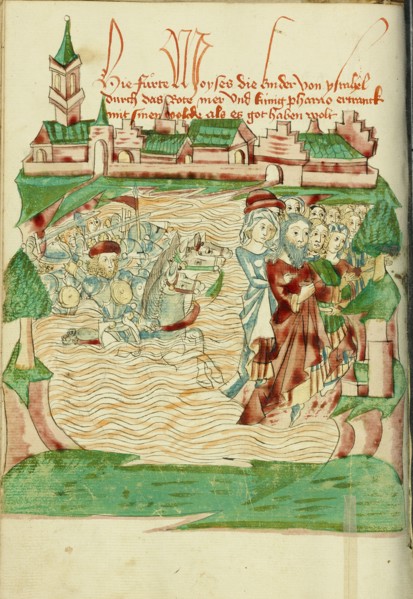 Hie fürte Moyses die kinder von ysrahel
durch das Rote mer Vnd künig pharao ertranck
mit sinem volcke als es got haben wolt